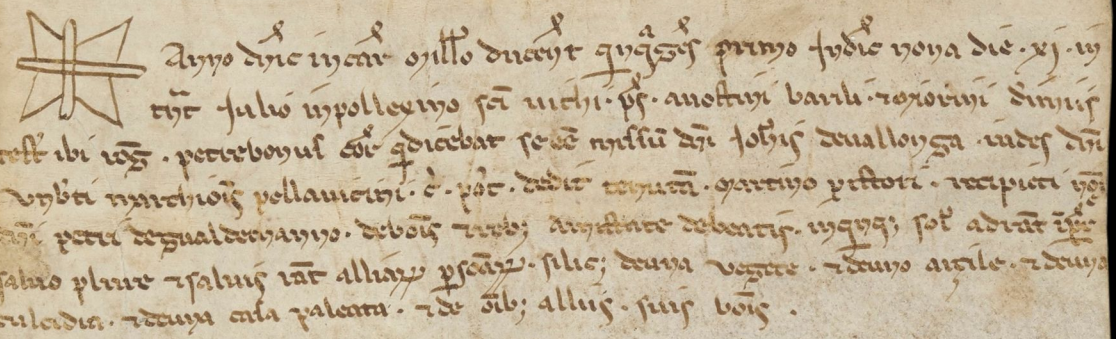 Anno dnic incar̄ millo ducent qinqages primo Indic nona die · xi · in
tnt Julio in pollexino sci vichi · ps · auostini barili · & morini
testi ibi rog · petrebonus cor q dicebat se ee missu dni Johis de vallonga · iudes dni
Vbti marchiois pellavicini · & pot · dedit tenuta · martino pistori · recipieti noie
dni petri de gualdemanno · de bois & reb; in qnq; sol
salvo plure & salvis rat alliar psoar · silic; de una vegete · & de uno & de una
culcidia · & de una casa paleata · & de oib; alliis · suis bois ·